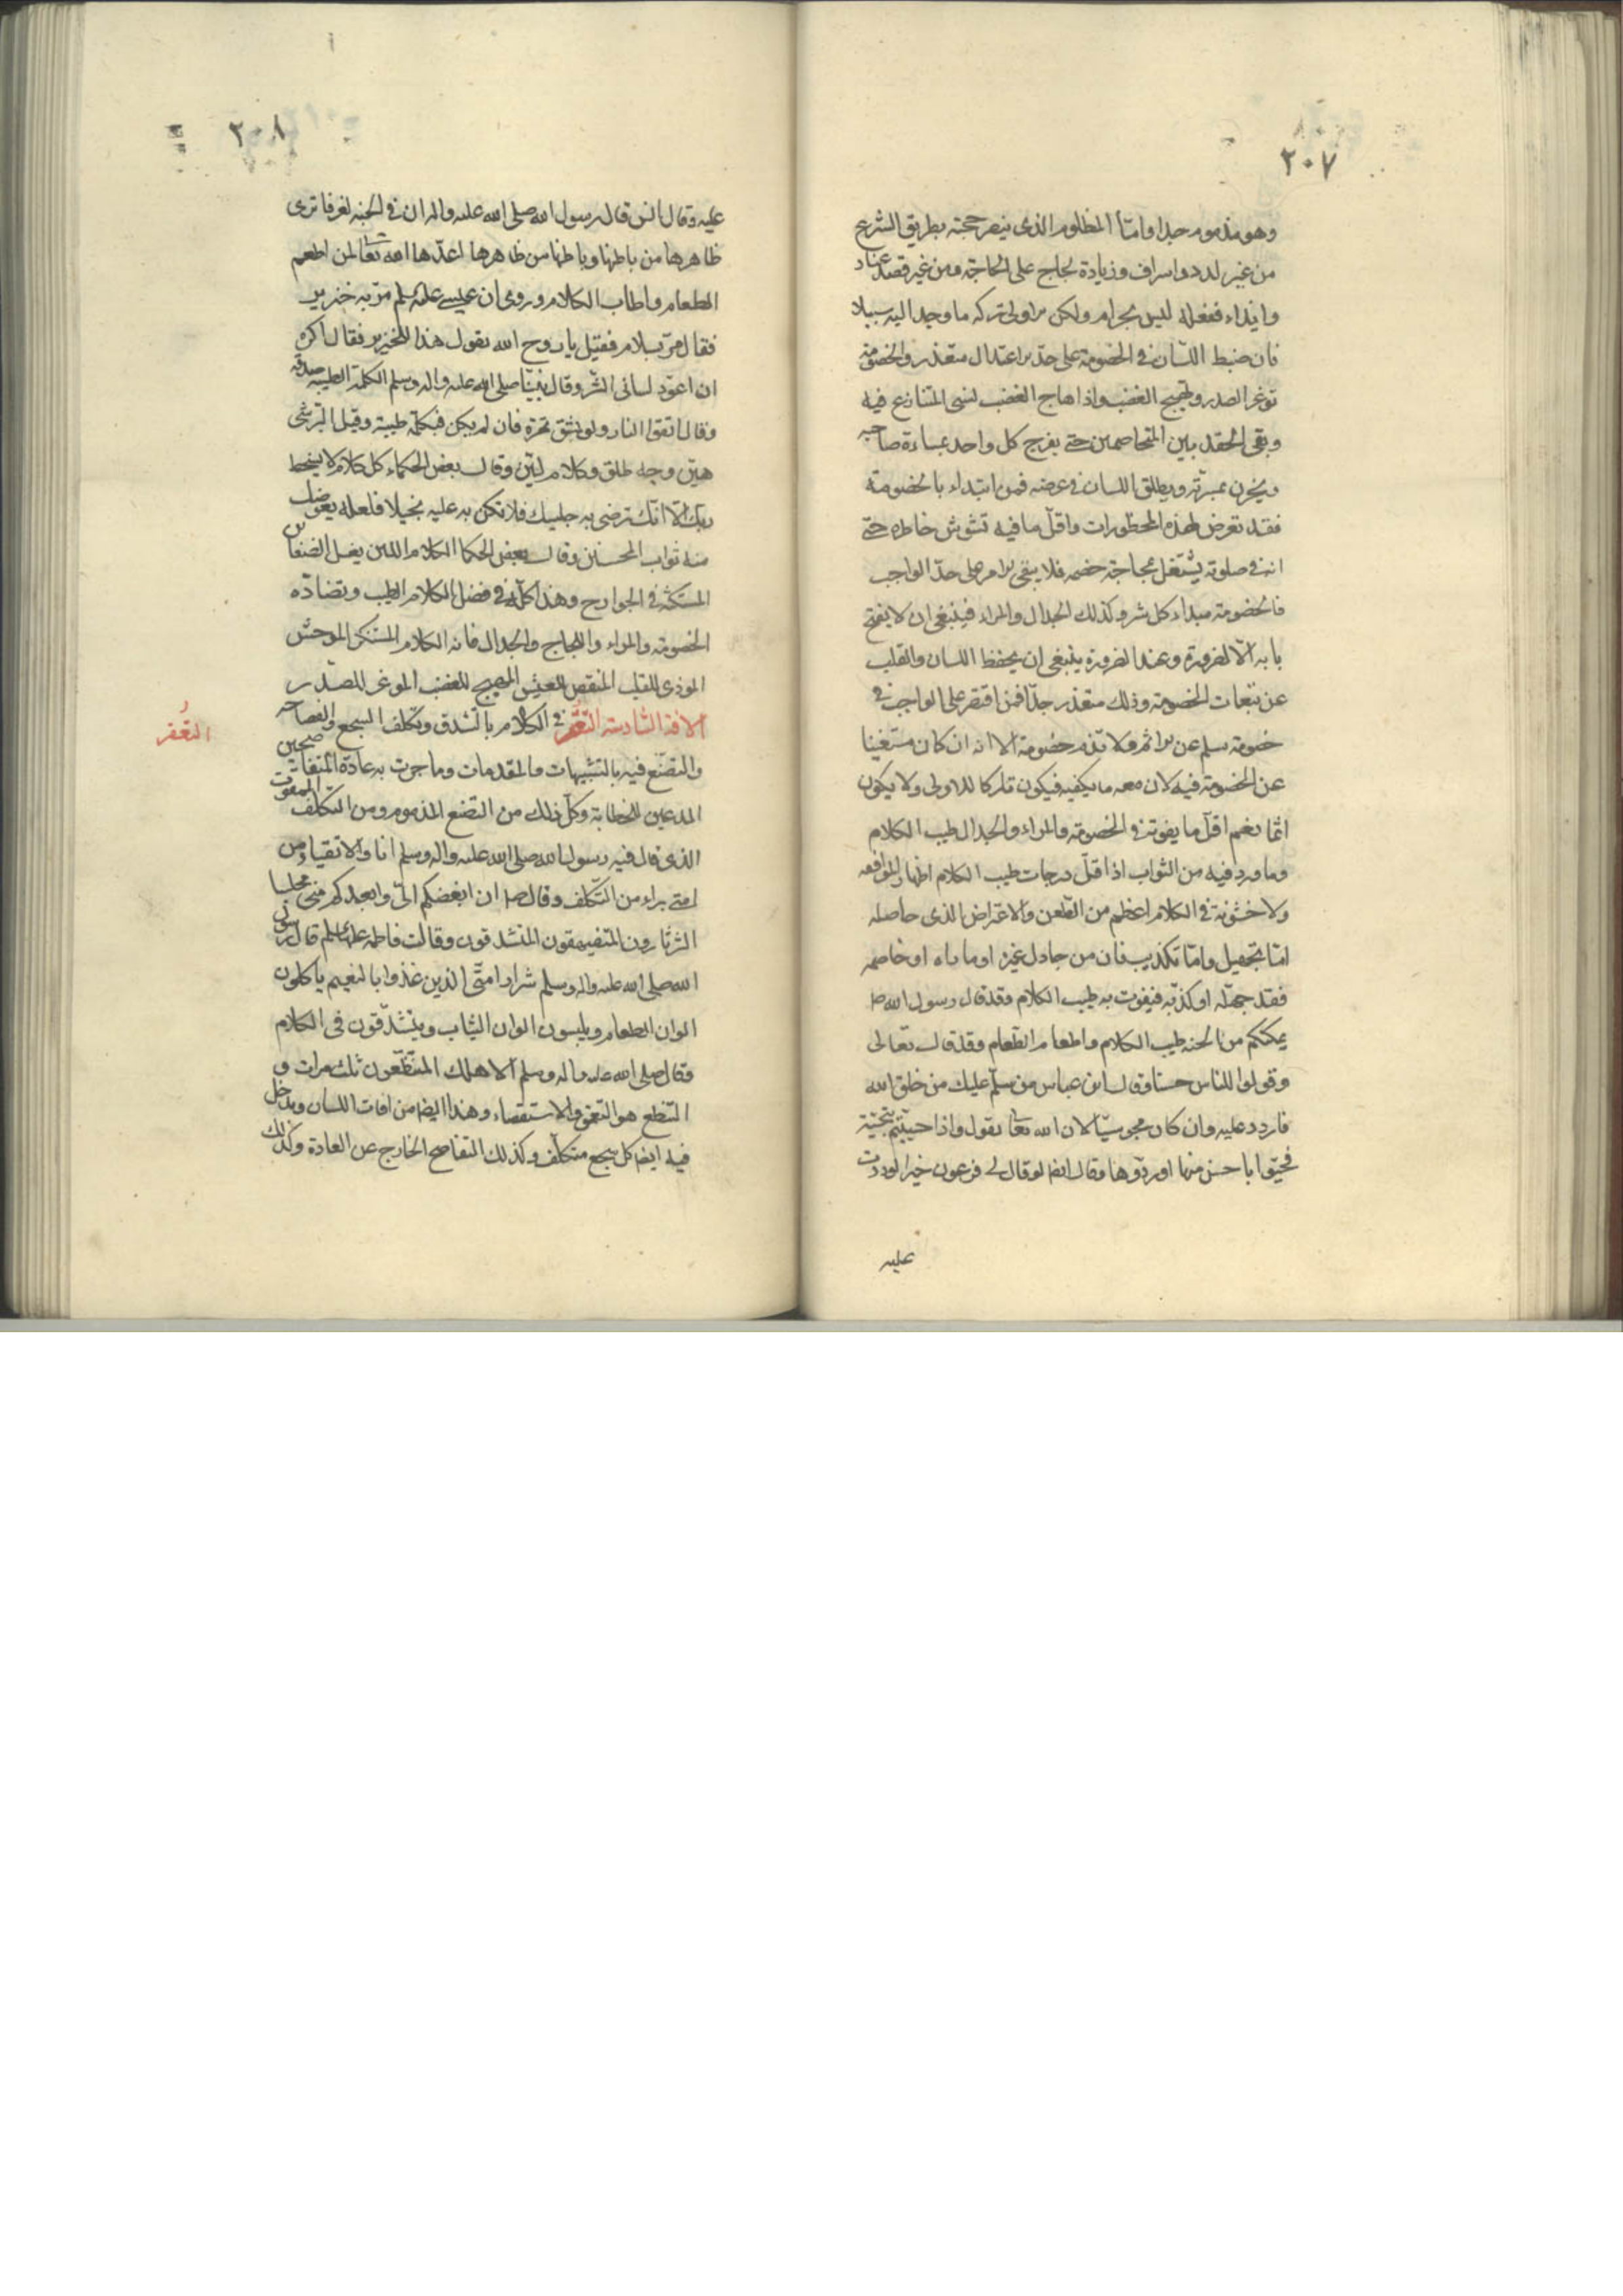 ٢٠٧
وهو مذموم جدا واما المظلوم الذى ينصر حجته بطريق الشرع
من غير لدد واسراف وزيادة لجاج على الحاجة ومن غير قصد عناد
وايذاء ففعله ليس بحرام ولكن الاولى تركه ما وجد اليه سبيلا
فان ضبط اللسان فى الخصومة على حد الاعتدال متعذر والخصومة
توغر الصدر وتهيج الغضب واذا هاج الغضب نسى المتنازع فيه
وبقى الحقد بين المتخاصمين حتى يفرح كل واحد بمساءة صاحبه
ويحزن بمسرته ويطلق اللسان فى عرضه فمن ابتداء بالخصومة
فقد تعرض لهذه المحظورات واقل ما فيه تشوش خاطره حتى
انه فى صلوته يشتغل بمحاجة خصمه فلا يبقى الامر على حد الواجب
فالخصومة مبداء كل شر وكذلك الجدال والمراء فينبغى ان لا يفتح
بابه الا لضرورة وعند الضرورة ينبغى ان يحفظ اللسان والقلب
عن تبعات الخصومة وذلك متعذر جدا فمن اقتصر على الواجب فى
خصومة سلم عن الاثم ولا تذم خصومة الا انه ان كان مستغنيا
عن الخصومة فيه لان معه ما يكفيه فيكون تاركا للاولى ولا يكون
اثما نعم اقل ما يفوته فى الخصومة والمراء والجدال طيب الكلام
وما ورد فيه من الثواب اذ اقل درجات طيب الكلام اظهار الموافقه
ولا خشونة فى الكلام اعظم من الطعن والاعتراض الذى حاصله
اما تجهيل واما تكذيب فان من جادل غيره او ماراه او خاصمه
فقد جهله او كذبه فيفوت به طيب الكلام وقد قال رسول الله ص
يمكنكم من الجنه طيب الكلام واطعام الطعام وقد قال تعالى
وقولوا للناس حسنا وقال ابن عباس من سلم عليك من خلق الله
فاردد عليه وان كان مجوسيا لان الله تعا يقول واذا حييتم بتحية
فحيوا باحسن منها او ردوها وقال ايضا لو قال لى فرعون خيرا لرددت
عليه
٢٠٨
عليه وقال انس قال رسول الله صلى الله عليه واله ان فى الجنه لغرفا ترى
ظاهرها من باطنها وباطنها من ظاهرها اعدها الله تعا لمن اطعم
الطعام واطاب الكلام وروى ان عيسى عليه السلم مر به خنزير
فقال مر بسلام فقيل يا روح الله تقول هذا للخنزير فقال اكره
ان اعود لسانى الشر وقال نبينا صلى الله عليه واله وسلم الكلمة الطيبه صدقه
وقال اتقوا النار ولو بشق تمرة فان لم يكن فبكلمة طيبة وقيل البر شى
هين وجه طلق وكلام لين وقال بعض الحكماء كل كلام لا يسخط
ربك الا انك ترضى به جليسك فلا تكن به عليه بخيلا فلعله يعوضك
منه ثواب المحسنين وقال بعض الحكما الكلام اللين يغسل الضغائن
المستكنة فى الجوارح وهذا كله فى فضل الكلام الطيب وتضاده
الخصومه والمراء واللجاج والجدال فانه الكلام المستنكر الموحش
الموذى للقلب المنغص للعيش المهيج للغضب الموغر للصدر
الافة السادسة التقعر فى الكلام بالتشدق وتكلف السجع والفصاحه
التقعر
والتصنع فيه بالتشبيهات والمقدمات وما جرت به عادة المتفاصحين
المدعين للخطابة وكل ذلك من التصنع المذموم ومن التكلف الممقوت
الذى قال فيه رسول الله صلى الله عليه واله وسلم انا والاتقياء من
امتى براء من التكلف وقال ص ان ابغضكم الى وابعدكم منى مجلسا
الثرثارون المتفيهقون المتشدقون وقالت فاطمه عليها السلم قال رسول
الله صلى الله عليه واله وسلم شرار امتى الذين غذوا بالنعيم ياكلون
الوان الطعام ويلبسون الوان الثياب ويتشدقون فى الكلام
وقال صلى الله عليه واله وسلم الا هلك المتنطعون ثلث مرات و
التنطع هو التعمق والاستقصاء وهذا ايضا من افات اللسان ويدخل
فيه ايضا كل سجع متكلف وكذلك التفاصح الخارج عن العادة وكذلك